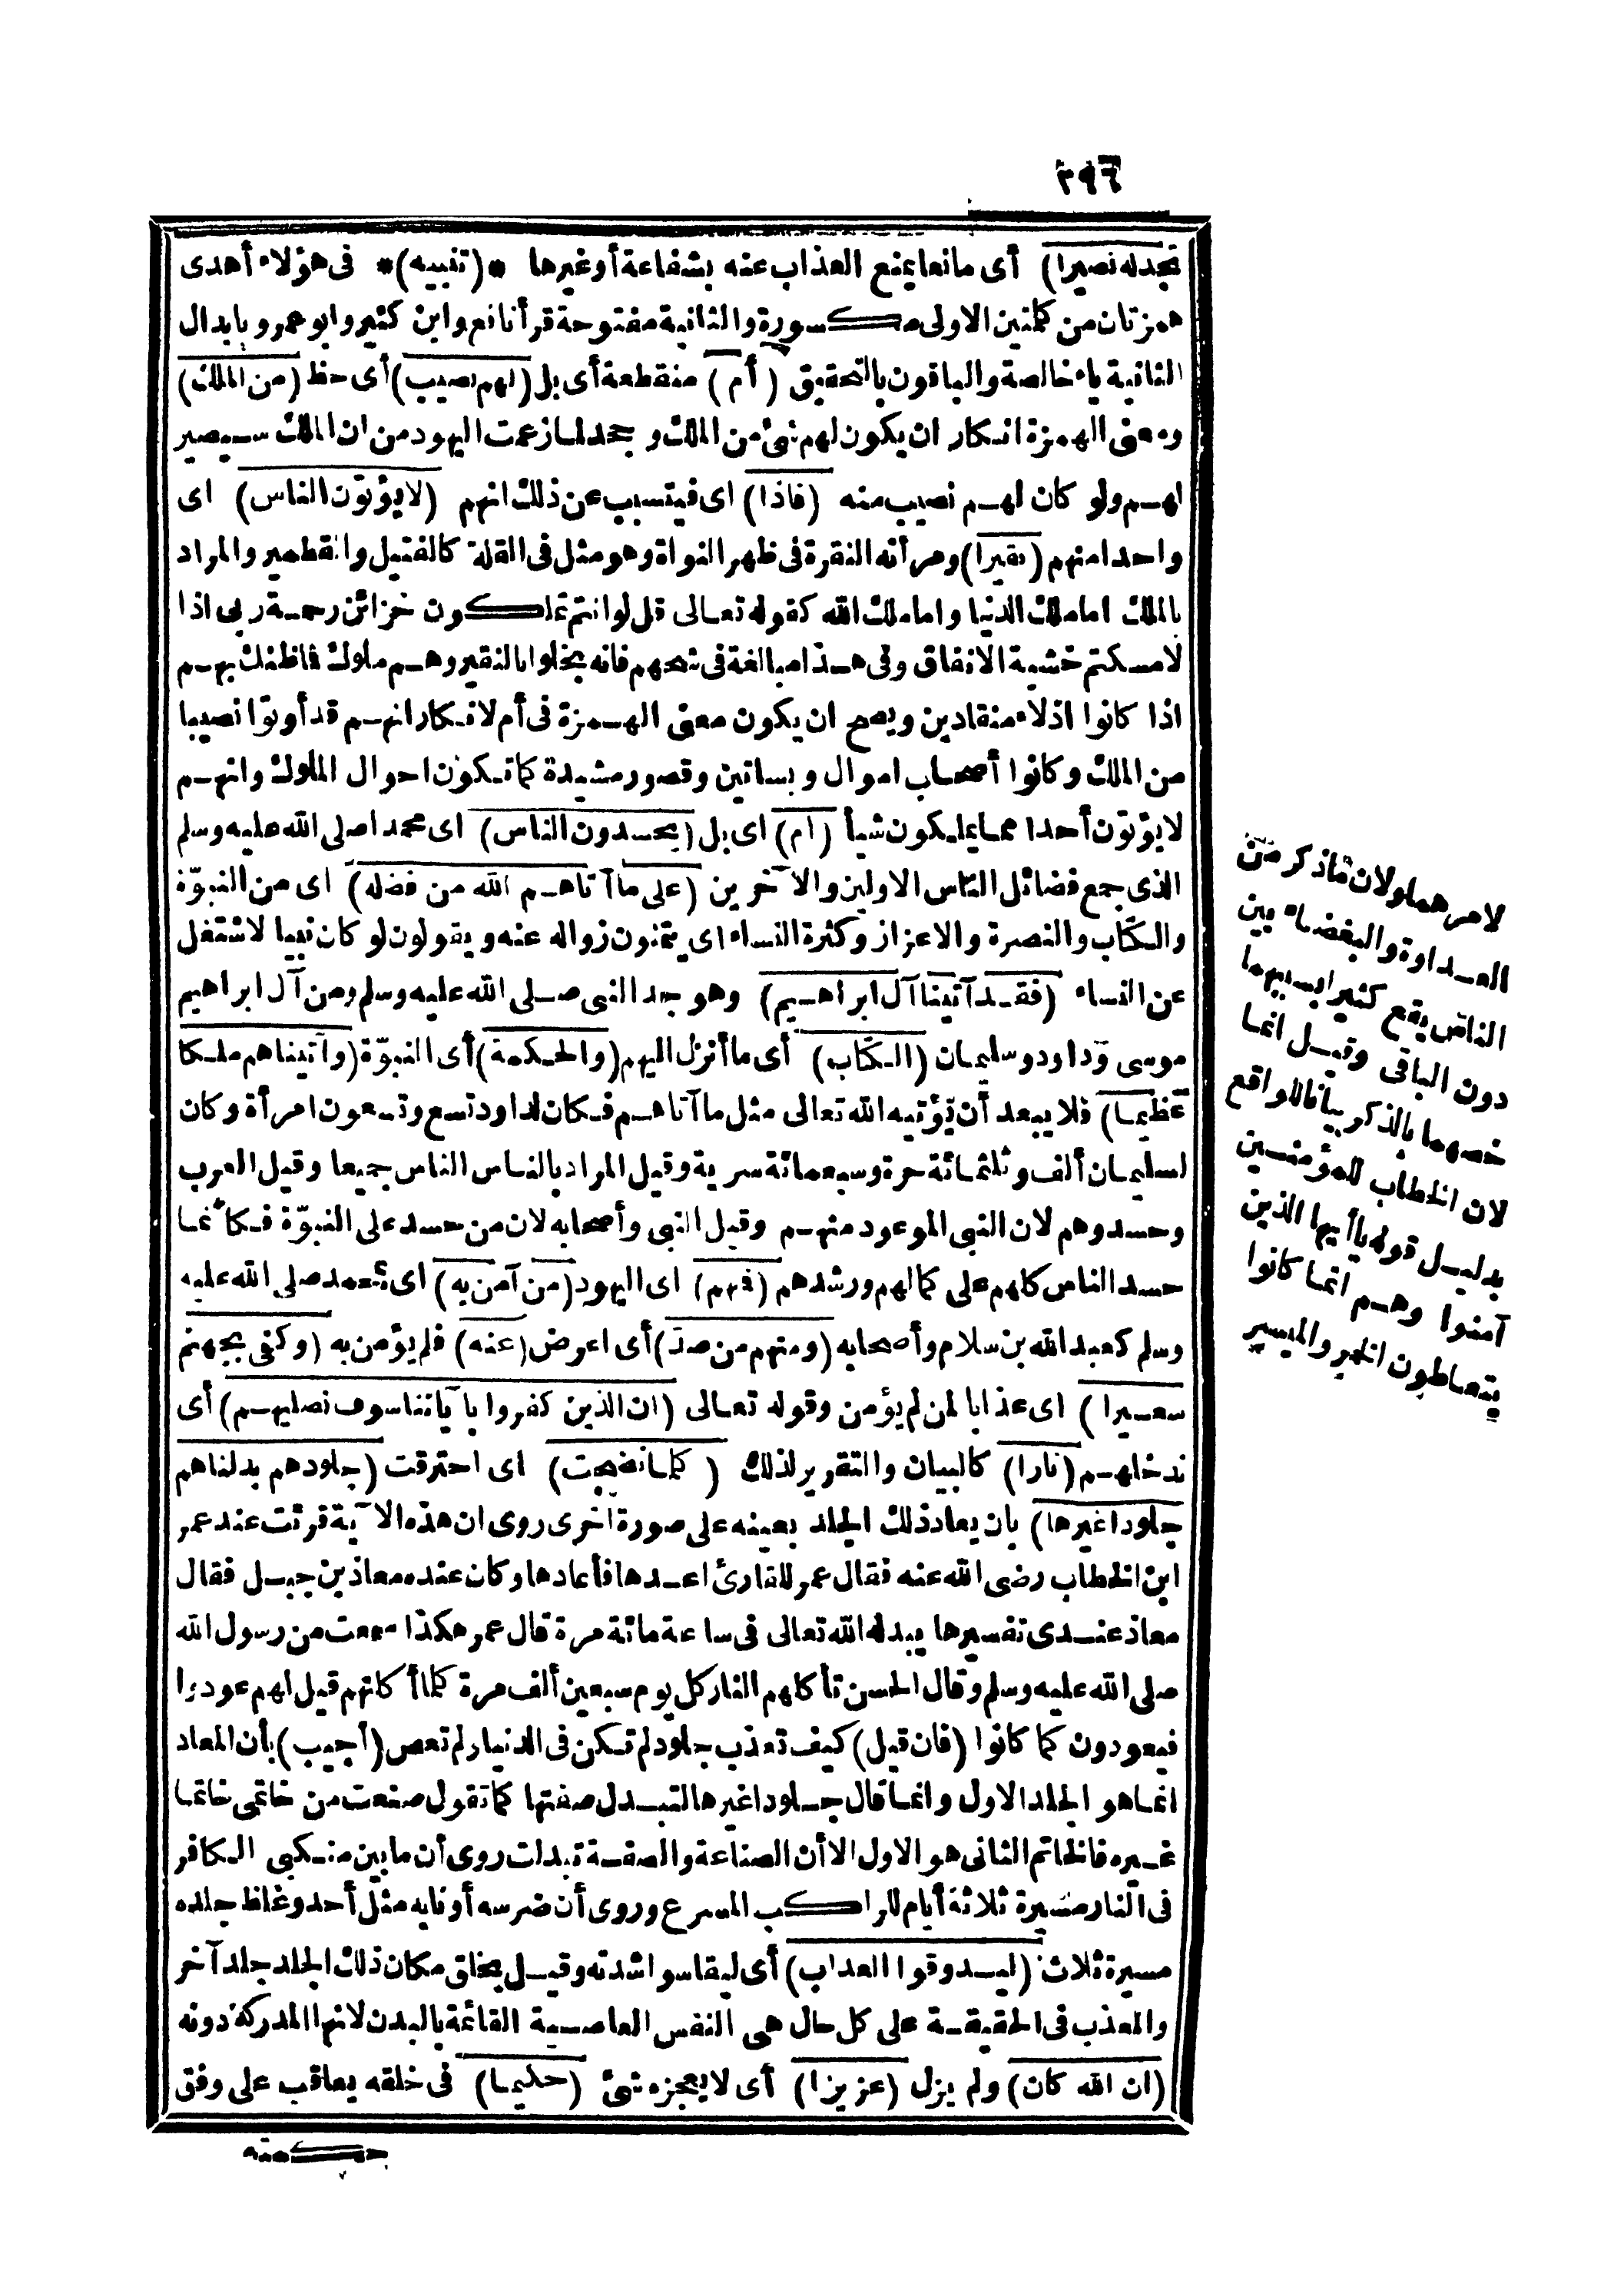 ٢٩٦
تجد له نصيرا) أى مانعا يمنع العذاب عنه بشفاعة أو غيرها *(تنبيه)* فى هؤلاء أهدى
همزتان من كلمتين الاولى مكسورة والثانية مفتوحة قرأ نافع وابن كثير وابو عمرو بابدال
الثانية ياء خالصة والباقون بالتحقيق (أم) منقطعة أى بل (لهم نصيب) أى حظ (من الملك)
ومعنى الهمزة انكار ان يكون لهم شئ من الملك و جحد لما زعمت اليهود من ان الملك سيصير
لهم ولو كان لهم نصيب منه (فاذا) اى فيتسبب عن ذلك انهم (لا يؤتون الناس) اى
واحدا منهم (نقيرا) ومر أنه النقرة فى ظهر النواة وهو مثل فى القلة كالفتيل والقطمير والمراد
بالملك اما ملك الدنيا واما ملك الله كقوله تعالى قل لو انتم تملكون خزائن رحمة ربى اذا
لامسكتم خشية الانفاق وفى هذا مبالغة فى شحهم فانه بخلوا بالنقير وهم ملوك فاظنك بهم
اذا كانوا اذلاء منقادين ويصح ان يكون معنى الهمزة فى أم لانكار انهم قد أوتوا نصيبا
من الملك وكانوا أصحاب اموال وبساتين وقصور مشيدة كما تكون احوال الملوك وانهم
لا يؤتون أحدا مما يملكون شيأ (ام) اى بل (يحسدون الناس) اى محمدا صلى الله عليه وسلم
الذى جمع فضائل الناس الاولين والآخرين (على ما آتاهم الله من فضله) اى من النبوّة
والكتاب والنصرة والاعزاز وكثرة النساء اى يتمنون زواله عنه ويقولون لو كان نبيا لاشتغل
عن النساء (فقد آتينا آل ابراهيم) وهو جد النبى صلى الله عليه وسلم ومن آل ابراهيم
موسى وداود وسليمان (الكتاب) أى ما أنزل اليهم (والحكمة) أى النبوّة (وآتيناهم ملكا
عظيما) فلا يبعد أن يؤتيه الله تعالى مثل ما آتاهم فكان لداود تسع وتسعون امرأة وكان
لسليمان ألف وثلثمائة حرة وسبعمائة سرية وقيل المراد بالناس الناس جميعا وقيل العرب
وحسدوهم لان النبى الموعود منهم وقيل النبى وأصحابه لان من حسد على النبوّة فكأنما
حسد الناس كلهم على كمالهم ورشدهم (فمنهم) اى اليهود (من آمن به) اى بمحمد صلى الله عليه
وسلم كعبد الله بن سلام وأصحابه (ومنهم من صدّ) أى اعرض (عنه) فلم يؤمن به (وكفى بجهنم
سعيرا) اى عذابا لمن لم يؤمن وقوله تعالى (ان الذين كفروا بآياتنا سوف نصليهم) أى
ندخلهم (نارا) كالبيان والتقرير لذلك (كلما نضجت) اى احترقت (جلودهم بدلناهم
جلودا غيرها) بان يعاد ذلك الجلد بعينه على صورة اخرى روى ان هذه الآية قرئت عند عمر
ابن الخطاب رضى الله عنه فقال عمر للقارئ اعدها فأعادها وكان عنده معاذ بن جبل فقال
معاذ عندى تفسيرها يبدله الله تعالى فى ساعة مائة مرة قال عمر هكذا سمعت من رسول الله
صلى الله عليه وسلم وقال الحسن تأكلهم النار كل يوم سبعين ألف مرة كلما أكلتهم قيل لهم عودوا
فيعودون كما كانوا (فان قيل) كيف تعذب جلود لم تكن فى الدنيا ولم تعص (أجيب) بأن المعاد
انما هو الجلد الاول وانما قال جلودا غيرها لتبدل صفتها كما تقول صنعت من خاتمى خاتما
غيره فالخاتم الثانى هو الاول الا أن الصناعة والصفة تبدلت روى أن ما بين منكبى الكافر
فى النار مسيرة ثلاثة أيام للراكب المسرع وروى أن ضرسه أو نابه مثل أحد وغلظ جلده
مسيرة ثلاث (ليذوقوا العذاب) أى ليقاسوا شدته وقيل يخلق مكان ذلك الجلد جلد آخر
والمعذب فى الحقيقة على كل حال هى النفس العاصية القائمة بالبدن لانها المدركة دونه
(ان الله كان) ولم يزل (عزيزا) أى لا يعجزه شئ (حكيما) فى خلقه يعاقب على وفق
حكمته
لامر هما ولان ماذكر من
العداوة والبغضاء بين
الناس يقع كثيرا بسببهما
دون الباقى وقيل انما
خصهما بالذكر بيانا للواقع
لان الخطاب للمؤمنين
بدليل قوله يا أيها الذين
آمنوا وهم انما كانوا
يتعاطون الخمر والميسر